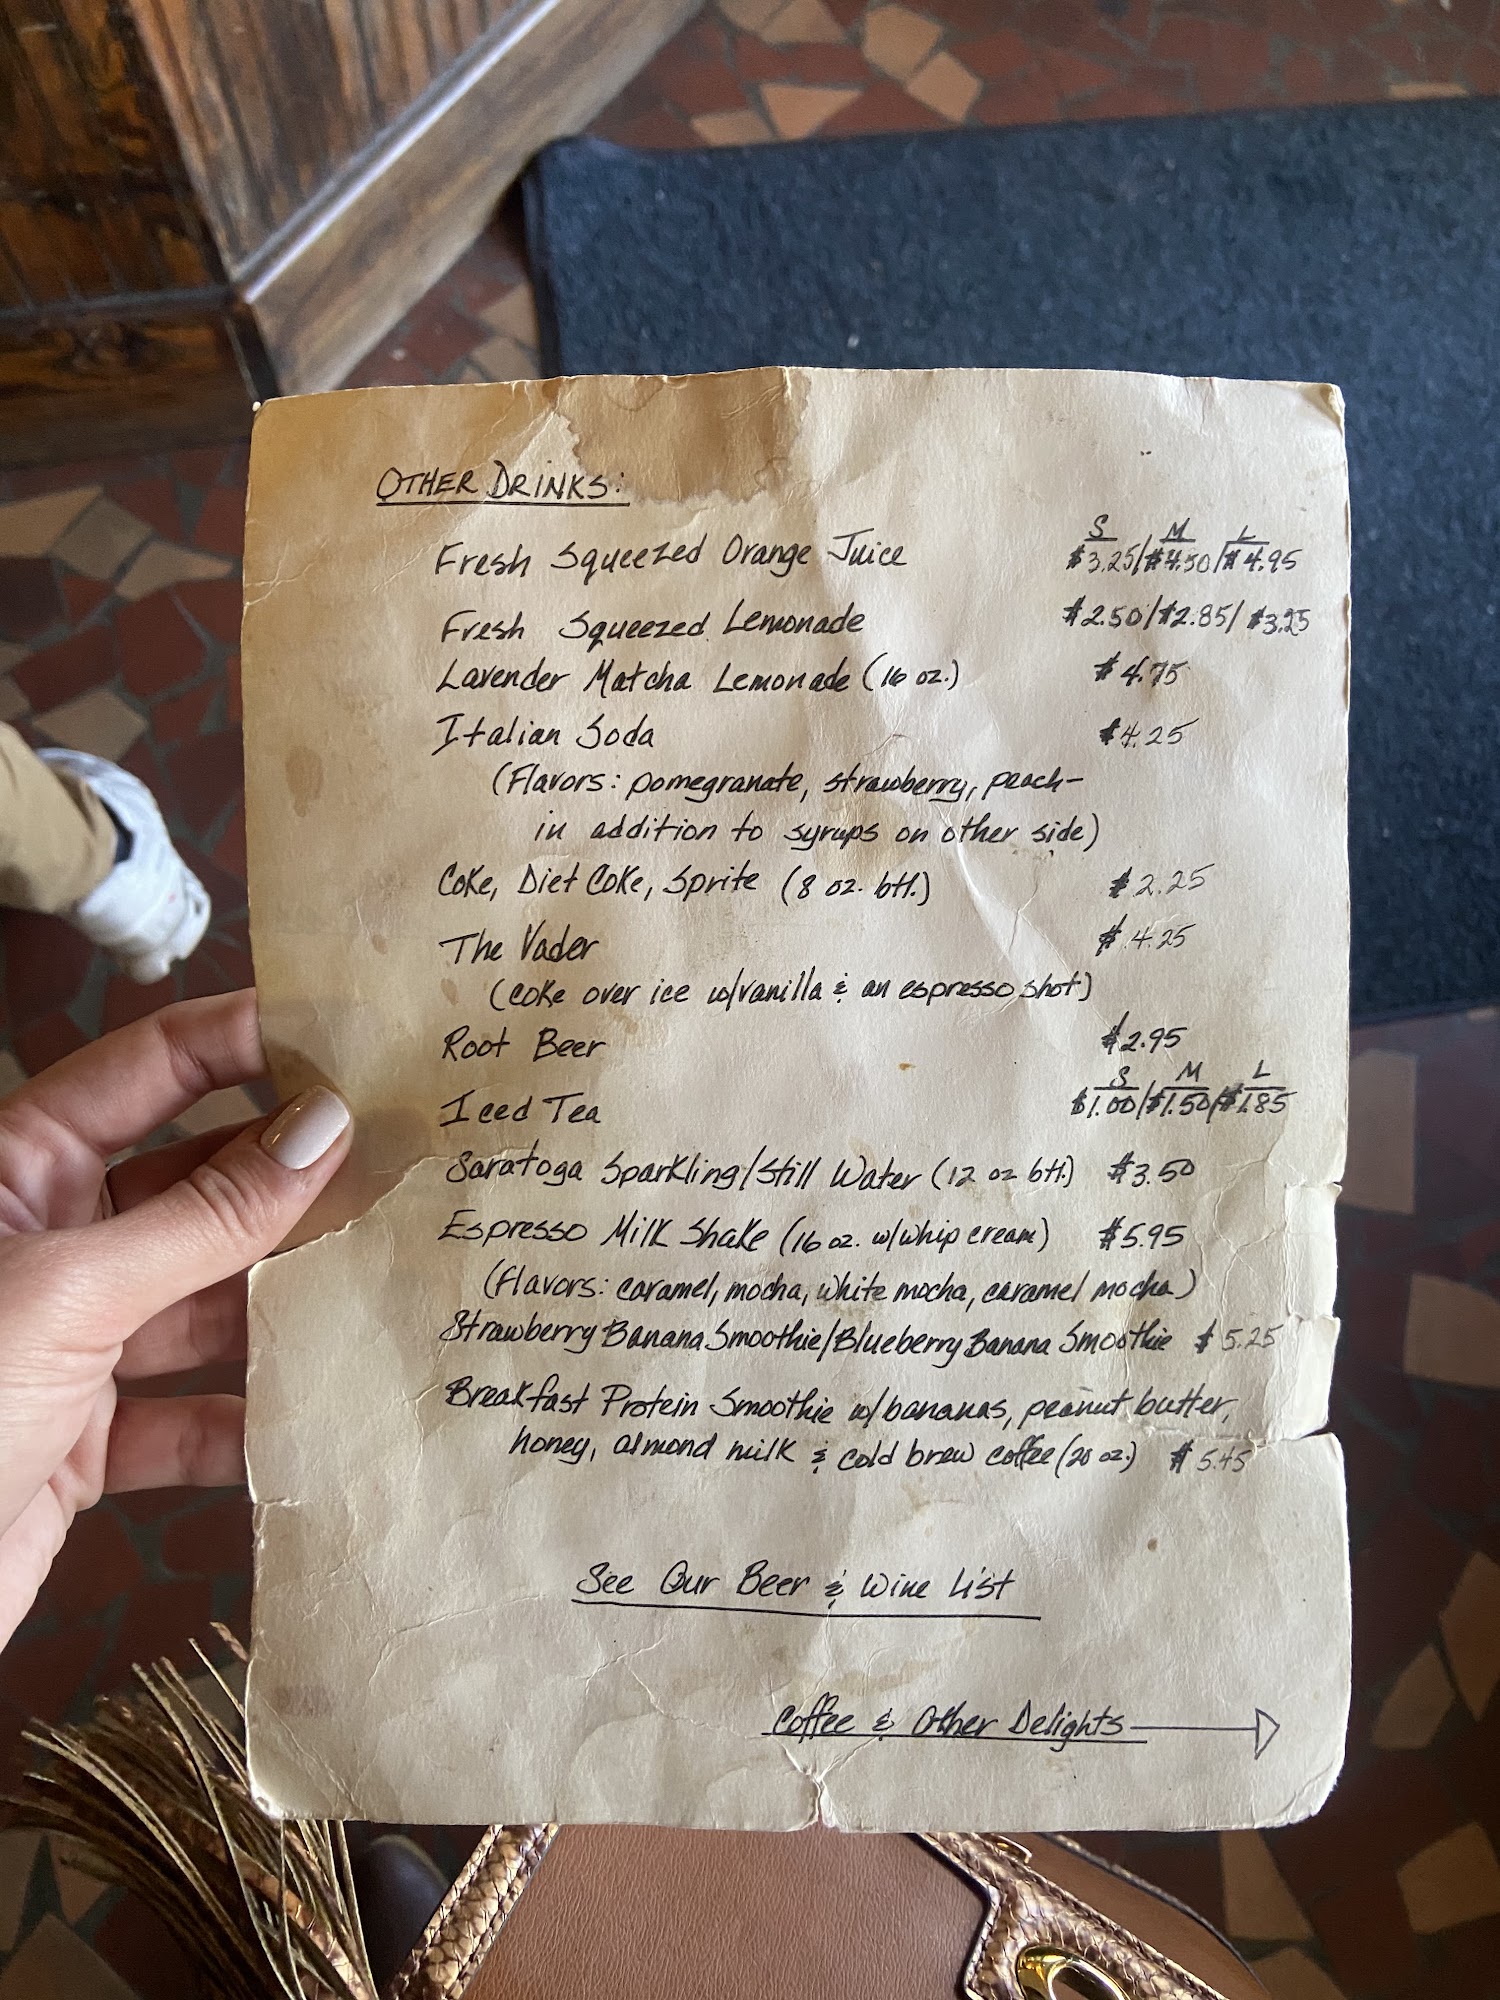 OTHER DRINKS:
S M L
Fresh Squeezed Orange Juice $3.25/$4.50/$4.95
Fresh Squeezed Lemonade $2.50/$2.85/$3.25
Lavender Matcha Lemonade (16 oz.) $4.75
Italian Soda $4.25
(Flavors: pomegranate, strawberry, peach-
in addition to syrups on other side)
Coke, Diet Coke, Sprite (8 oz. btl.) $2.25
The Vader $4.25
(coke over ice w/vanilla & an espresso shot)
Root Beer $2.95
S M L
Iced Tea $1.00/$1.50/$1.85
Saratoga Sparkling/Still Water (12 oz btl.) $3.50
Espresso Milk Shake (16 oz. w/whip cream) $5.95
(flavors: caramel, mocha, white mocha, caramel mocha)
Strawberry Banana Smoothie/Blueberry Banana Smoothie $5.25
Breakfast Protein Smoothie w/bananas, peanut butter,
honey, almond milk & cold brew coffee (20 oz.) $5.45
See Our Beer & Wine List
Coffee & Other Delights